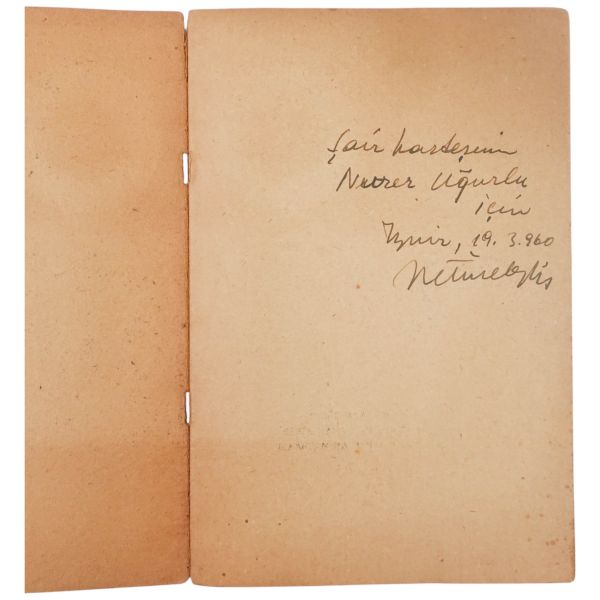 Şair kardeşim
Nurer Uğurlu
için
İzmir, 19.3.960